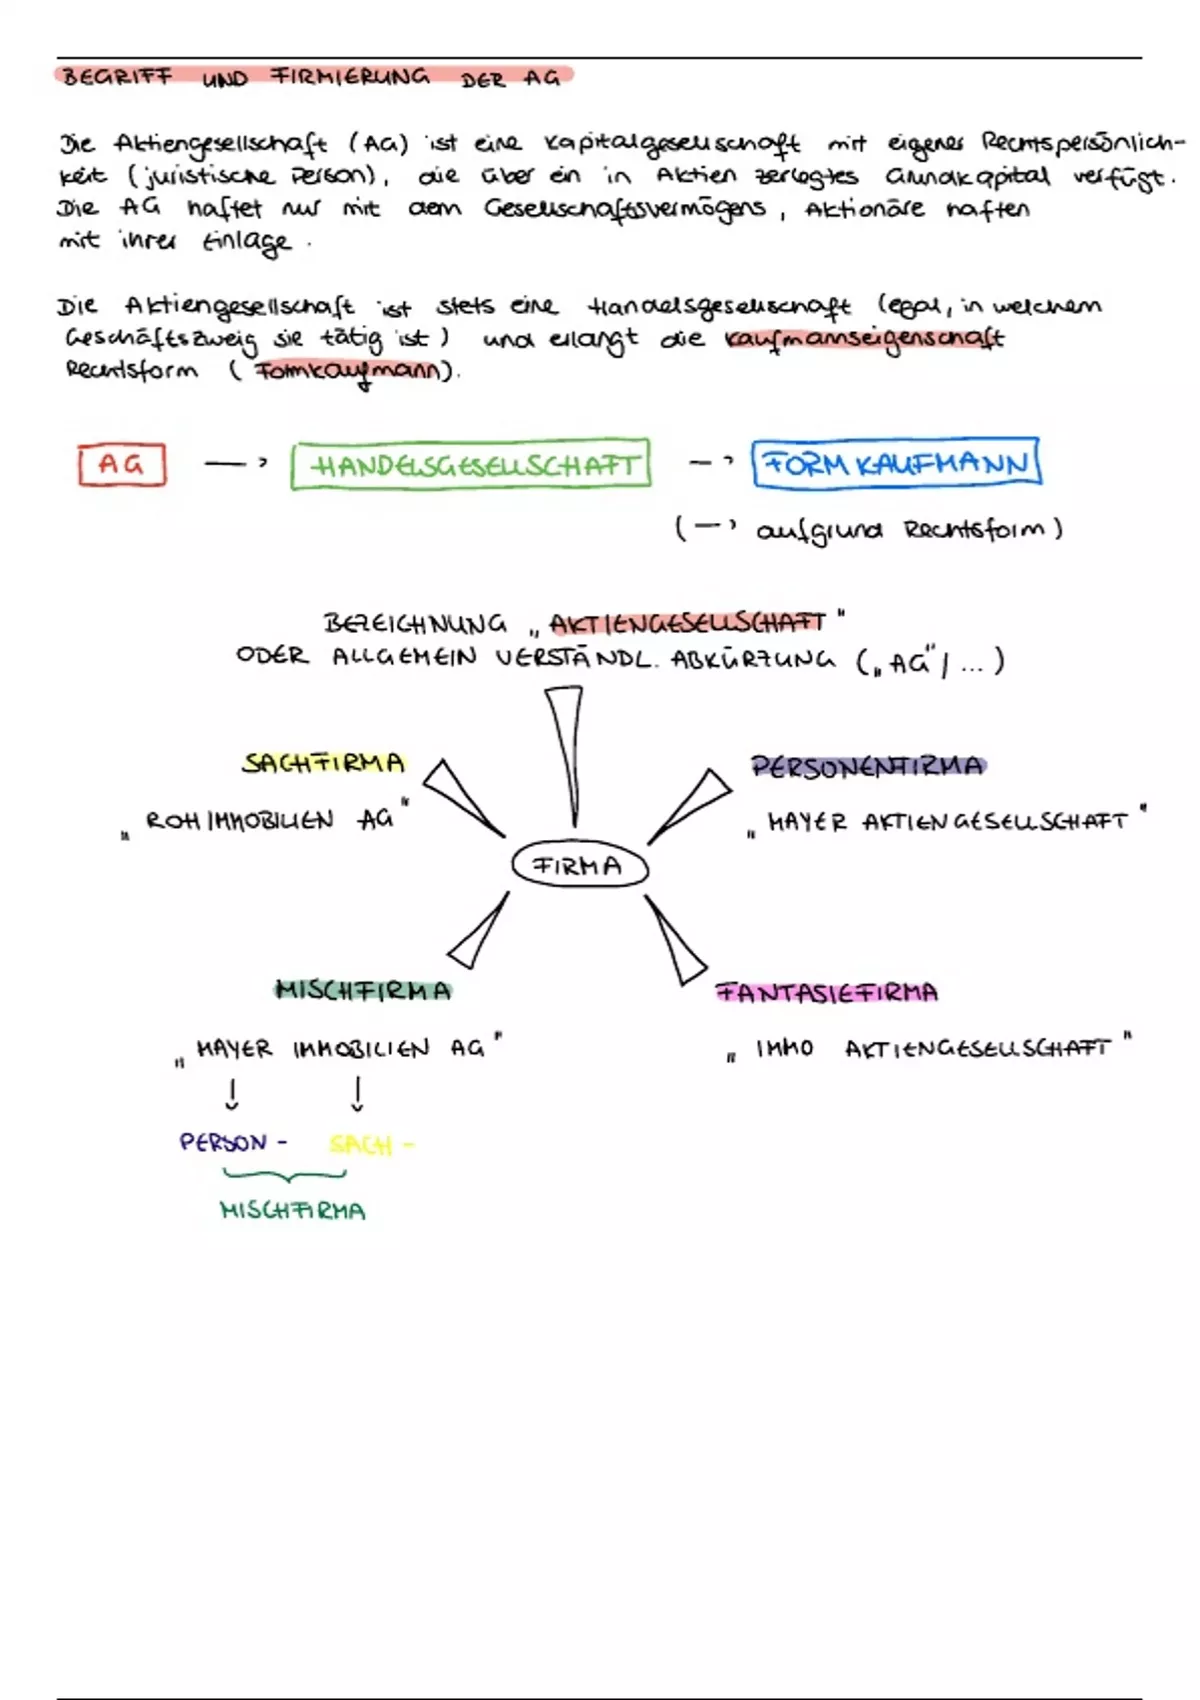 BEGRIFF UND FIRMIERUNG DER AG
Die Aktiengesellschaft (AG) ist eine Kapitalgesellschaft mit eigener Rechtspersönlich-
keit (juristische Person), die über ein in Aktien zerlegtes Grundkapital verfügt.
Die AG haftet nur mit dem Gesellschaftsvermögens, Aktionäre haften
mit ihrer Einlage.
Die Aktiengesellschaft ist stets eine Handelsgesellschaft (egal, in welchem
Geschäftszweig sie tätig ist) und erlangt die Kaufmannseigenschaft
Rechtsform (Formkaufmann).
AG → HANDELSGESELLSCHAFT → FORMKAUFMANN
(→ aufgrund Rechtsform)
BEZEICHNUNG „AKTIENGESELLSCHAFT"
ODER ALLGEMEIN VERSTÄNDL. ABKÜRZUNG („AG"/ ...)
SACHFIRMA PERSONENFIRMA
„ROH IMMOBILIEN AG" „MAYER AKTIENGESELLSCHAFT"
FIRMA
MISCHFIRMA FANTASIEFIRMA
„MAYER IMMOBILIEN AG" „IMMO AKTIENGESELLSCHAFT"
PERSON- SACH-
MISCHFIRMA